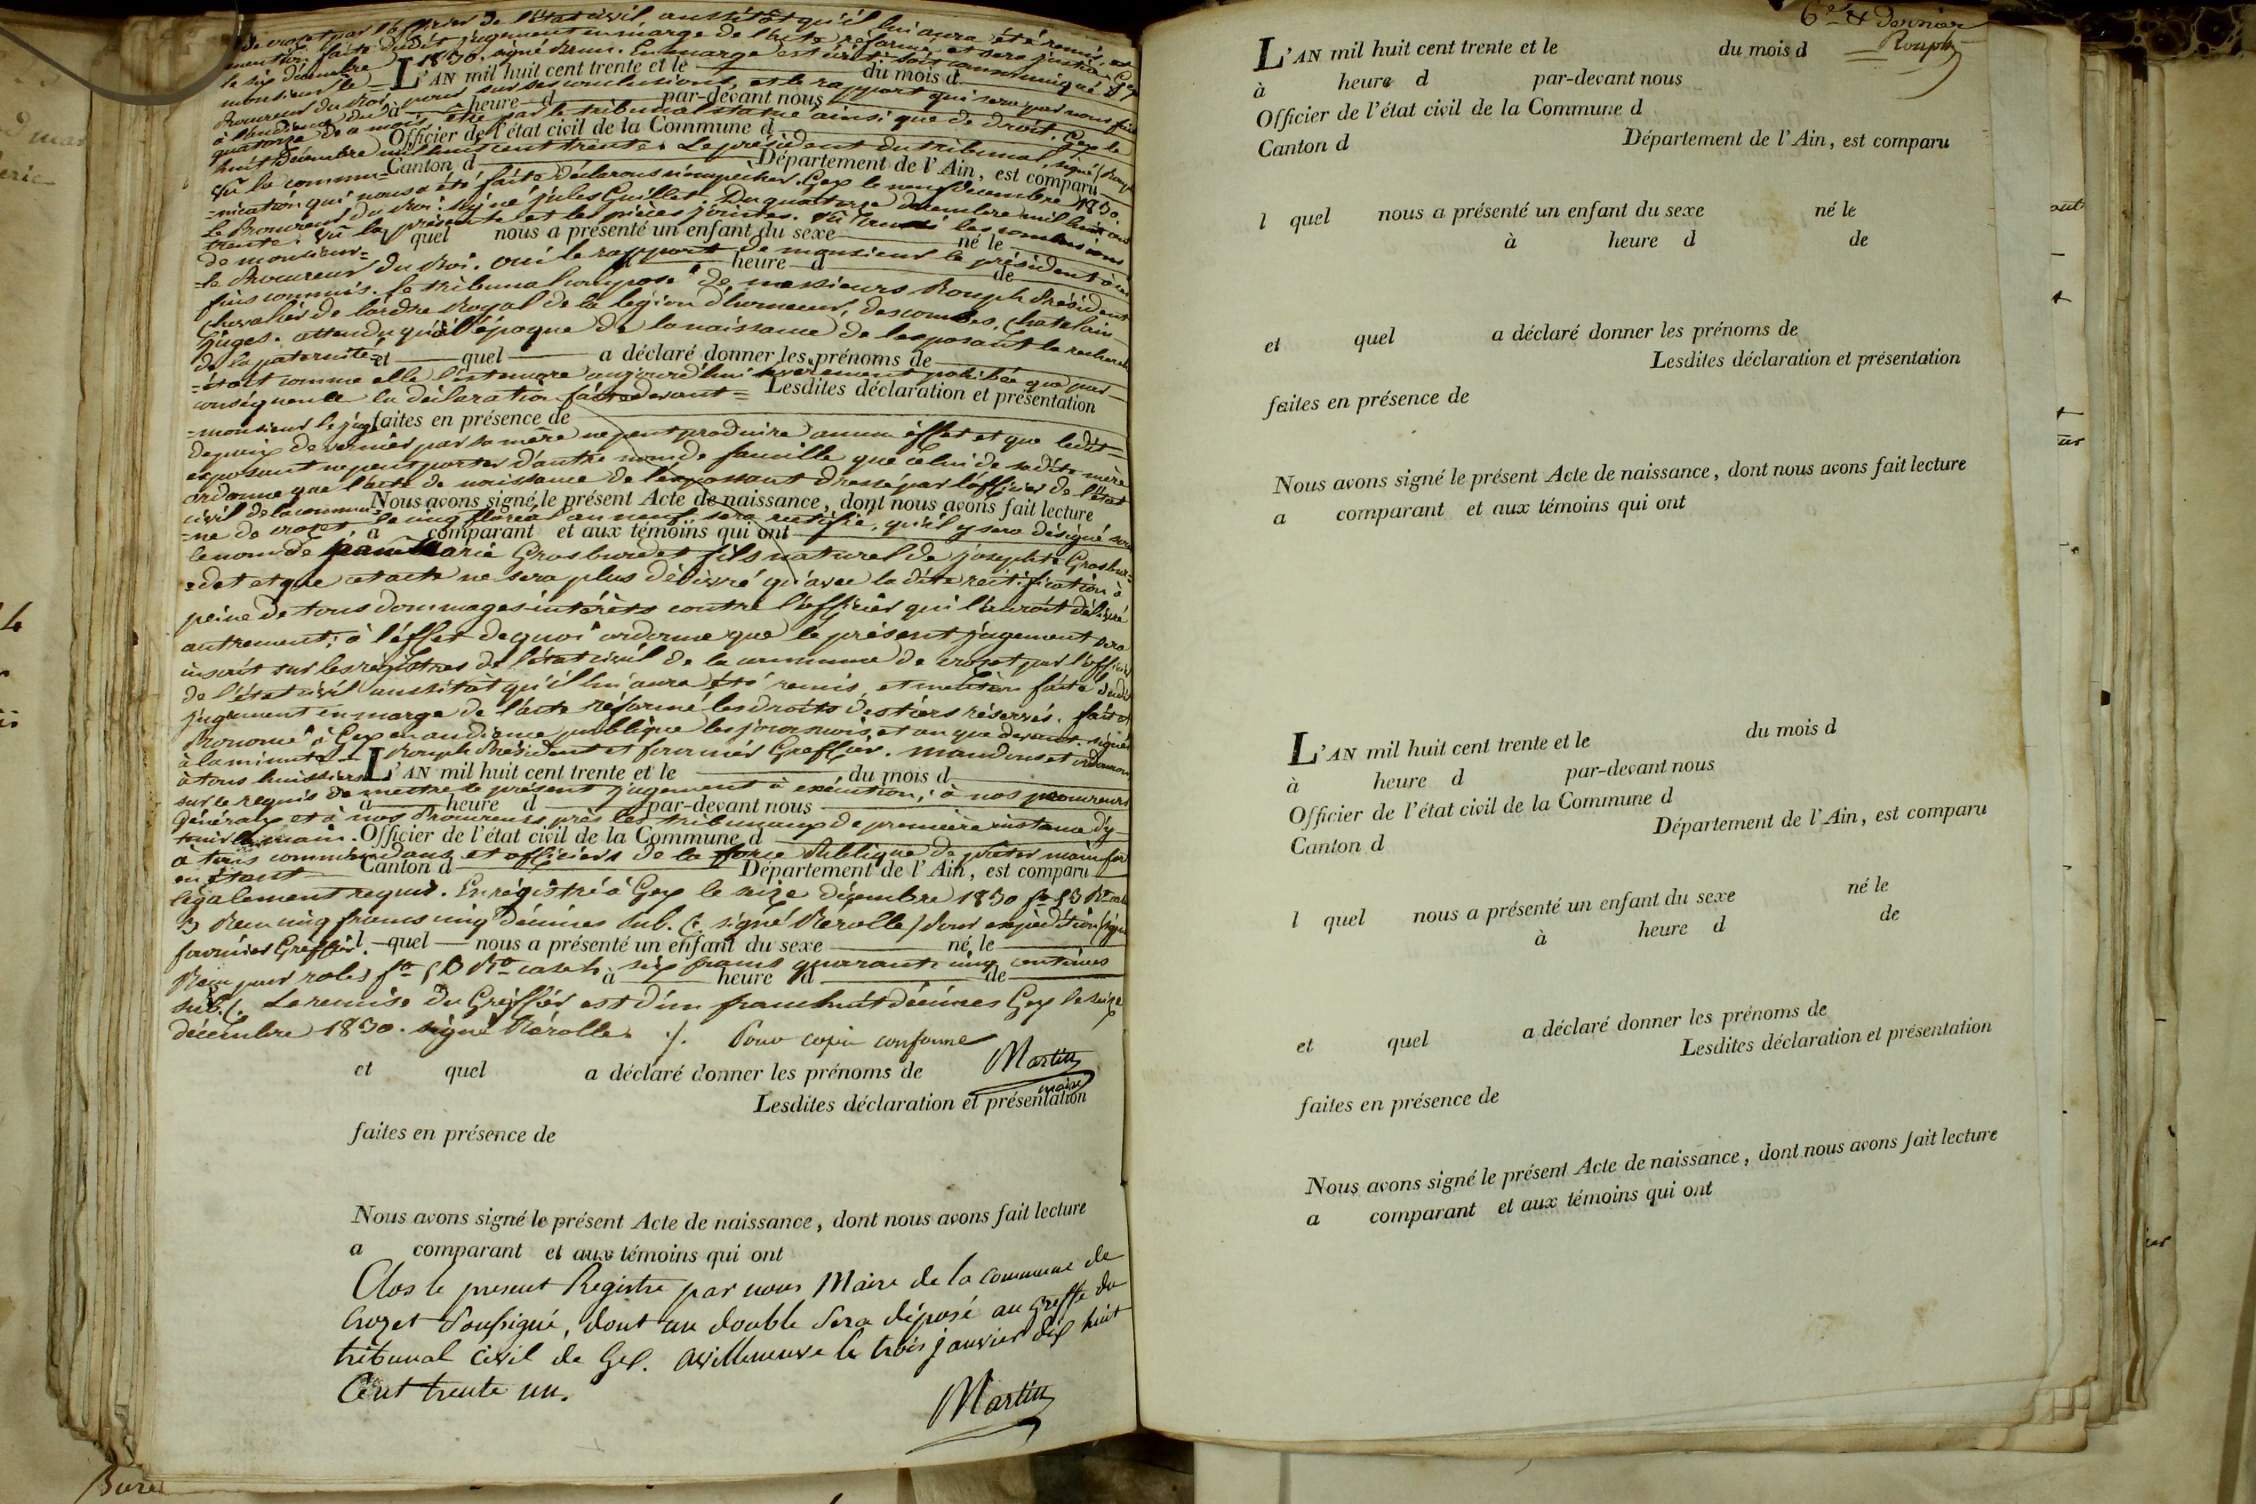 de crozet par l'officier de l'état civil, aussitôt qu'il lui aura été remis, et
mention faite dudit jugement en marge de l'acte réformé, et sera justice Gex
le six décembre 1830. signé Brun. En marge est écrit: soit communiqué à
L'AN mil huit cent trente et le du mois d
monsieur le
Procureur du Roi, pour sur ses conclusions, et le rapport qui sera par nous fait
à heure d par-devant nous
à l'audience du
quatorze de ce mois, être par le tribunal statué ainsi que de droit. Gex le
Officier de l'état civil de la Commune d
huit décembre mil huit cent trente. Le président du tribunal, signé Rouph
Canton d Département de l'Ain, est comparu
Vu la commu=
=nication qui nous a été faite déclarons n'empêcher. Gex le neuf décembre 1830.
le Procureur du Roi. signé jules Guillet. Du quatorze décembre mil huit cent
trente. Vu la présente et les pièces jointes. Vu les conclusions
quel nous a présenté un enfant du sexe né le
de monsieur=
=le Procureur du Roi. Oui le rapport de monsieur le président à ces
heure d de
fins commis. Le tribunal composé de messieurs Rouph Président
Chevalier de l'ordre Royal de la légion d'honneur, descombes, Chatelain
juges. attendu qu'à l'époque de la naissance de l'exposant la recherche
de la paternité
et quel a déclaré donner les prénoms de
=était comme elle l'est encore aujourd'hui sévèrement prohibée que par
conséquence la déclaration faite devant=
Lesdites déclaration et présentation
=monsieur le juge
faites en présence de
de paix de vernier par sa mère ne peut produire aucun effet et que ledit=
exposant ne peut porter d'autre nom de famille que celui de sa dite mère
ordonne que l'acte de naissance de l'exposant dressé par l'officier de l'état
civil de la commu=
Nous avons signé le présent Acte de naissance, dont nous avons fait lecture
=ne de crozet le cinq floréal an neuf sera rectifié, qu'il y sera désigné sous
a comparant et aux témoins qui ont
le nom de Marie Grosburdet fils naturel de josephte Grosbur=
=det et que cet acte ne sera plus délivré qu'avec la dite rectification à
peine de tous dommages intérêts contre l'officier qui l'auroit délivré
autrement; à l'effet de quoi ordonne que le présent jugement sera
inscrit sur les registres de l'état civil de la commune de crozet par l'officier
de l'état civil aussitôt qu'il lui aura été remis, et mention faite dudit
jugement en marge de l'acte réformé les droits des tiers réservés. fait et
Prononcé à Gex en audience publique les jour mois et an que devant. signés
à la minute Rouph Président et fournier Greffier. Mandons et ordonnons
L'AN mil huit cent trente et le du mois d
à tous huissiers
sur ce requis de mettre le présent jugement à exécution; à nos procureurs
à heure d par-devant nous
Généraux et à nos Procureurs près les tribunaux de première instance d'y
tenir la main.
Officier de l'état civil de la Commune d
à tous commandans et officiers de la force Publique de prêter main for
Canton d Département de l'Ain, est comparu
en étant
légalement requis. Enrégistré à Gex le seize décembre 1830
Reçu cinq francs cinq décimes sub. C. signé Rérolle / Pour expédition / signé
fournier Greffier.
l quel nous a présenté un enfant du sexe né le
six francs quarante cinq centimes
à heure d de
sub. C. La remise du Greffier est d'un franc huit décimes Gex le seize
décembre 1830. signé Rérolle. ./. Pour copie conforme
Martin
maire
et quel a déclaré donner les prénoms de
Lesdites déclaration et présentation
faites en présence de
Nous avons signé le présent Acte de naissance, dont nous avons fait lecture
a comparant et aux témoins qui ont
Clos le present Registre par nous Maire de la commune de
Crozet Soussigné, dont un double sera déposé au greffe du
tribunal civil de Gex. a villeneuve le trois janvier dix huit
Cent trente un.
Martin
6e & dernier
Rouph
L'AN mil huit cent trente et le du mois d
à heure d par-devant nous
Officier de l'état civil de la Commune d
Canton d Département de l'Ain, est comparu
l quel nous a présenté un enfant du sexe né le
à heure d de
et quel a déclaré donner les prénoms de
Lesdites déclaration et présentation
faites en présence de
Nous avons signé le présent Acte de naissance, dont nous avons fait lecture
a comparant et aux témoins qui ont
L'AN mil huit cent trente et le du mois d
à heure d par-devant nous
Officier de l'état civil de la Commune d
Canton d Département de l'Ain, est comparu
l quel nous a présenté un enfant du sexe né le
à heure d de
et quel a déclaré donner les prénoms de
Lesdites déclaration et présentation
faites en présence de
Nous avons signé le présent Acte de naissance, dont nous avons fait lecture
a comparant et aux témoins qui ont